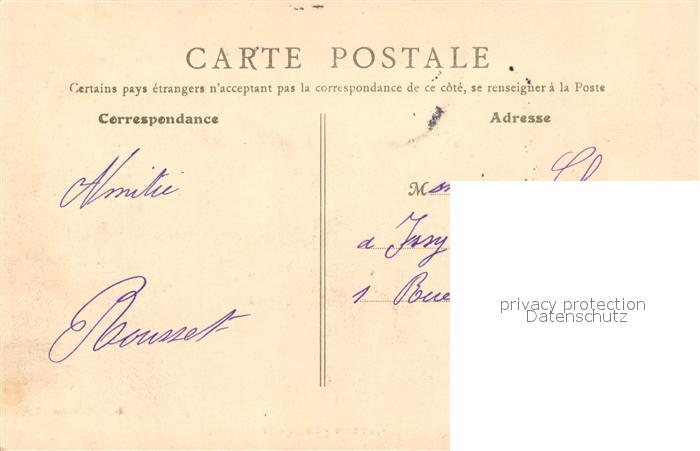 CARTE POSTALE
Certains pays étrangers n'acceptent pas la correspondance de ce côté, se renseigner à la Poste
Correspondance
Adresse
Amitié
Rousset
M
a Issy
1 Rue
privacy protection
Datenschutz